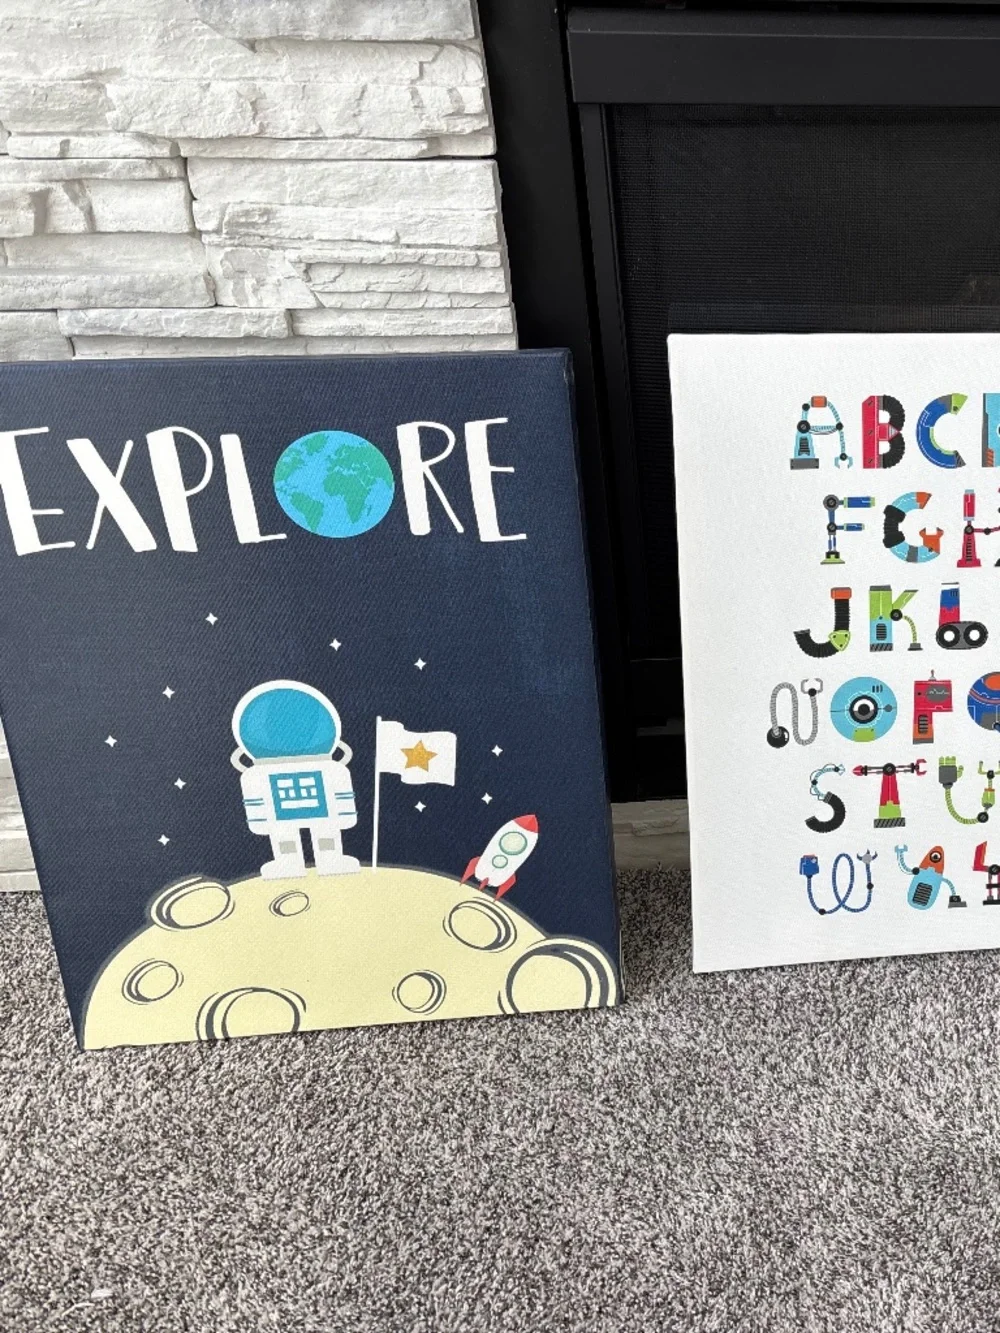 EXPLORE
ABCD
FGH
JKL
NOPQ
STU
WYX